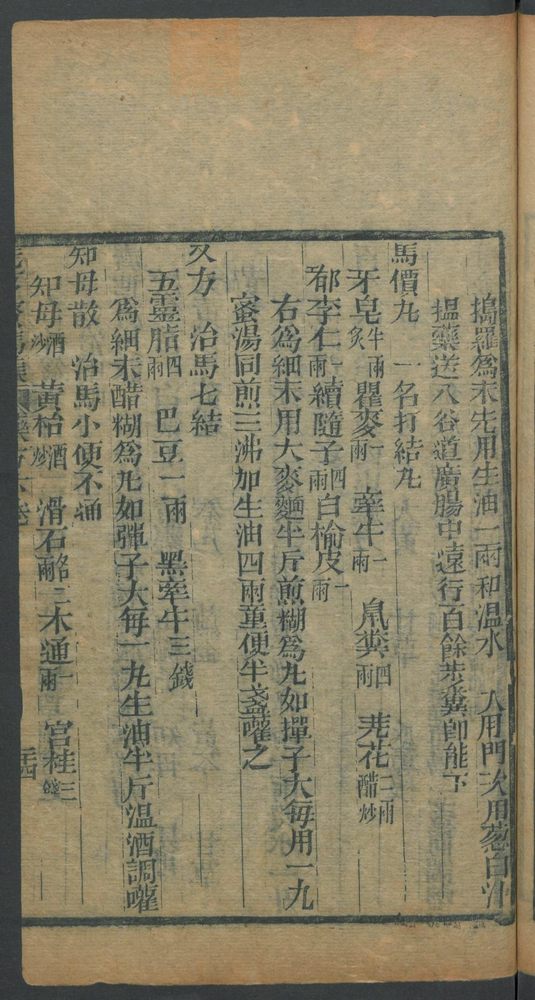 搗羅爲末先用生油一兩和溫水 入用門次用葱白汁
揾藥送入谷道廣腸中遠行百餘步糞卽能下
馬價丸 一名打結丸
牙皂半兩炙 瞿麥一兩 牽牛一兩 鼠糞四兩 芫花二兩醋炒
郁李仁一兩 續隨子四兩 白榆皮一兩
右爲細末用大麥麵半斤煎糊爲丸如彈子大每用一丸
蜜湯同煎三沸加生油四兩童便半盞嚾之
又方 治馬七結
五靈脂四兩 巴豆一兩 黑牽牛三錢
爲細末醋糊爲丸如彈子大每一丸生油半斤溫酒調嚾
知母散 治馬小便不通
知母酒炒 黃柏酒炒 滑石各二兩 木通一兩 官桂三錢
五四